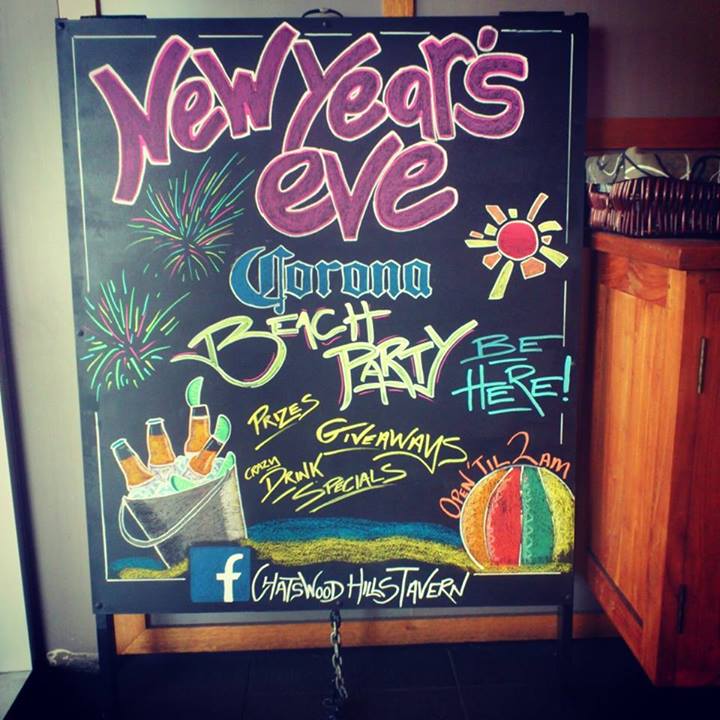 New Year's
eve
Corona
Beach
Party
Be
Here!
Prizes
Giveaways
Crazy
Drink
Specials
Open 'Til 2am
f Chatswood Hills Tavern